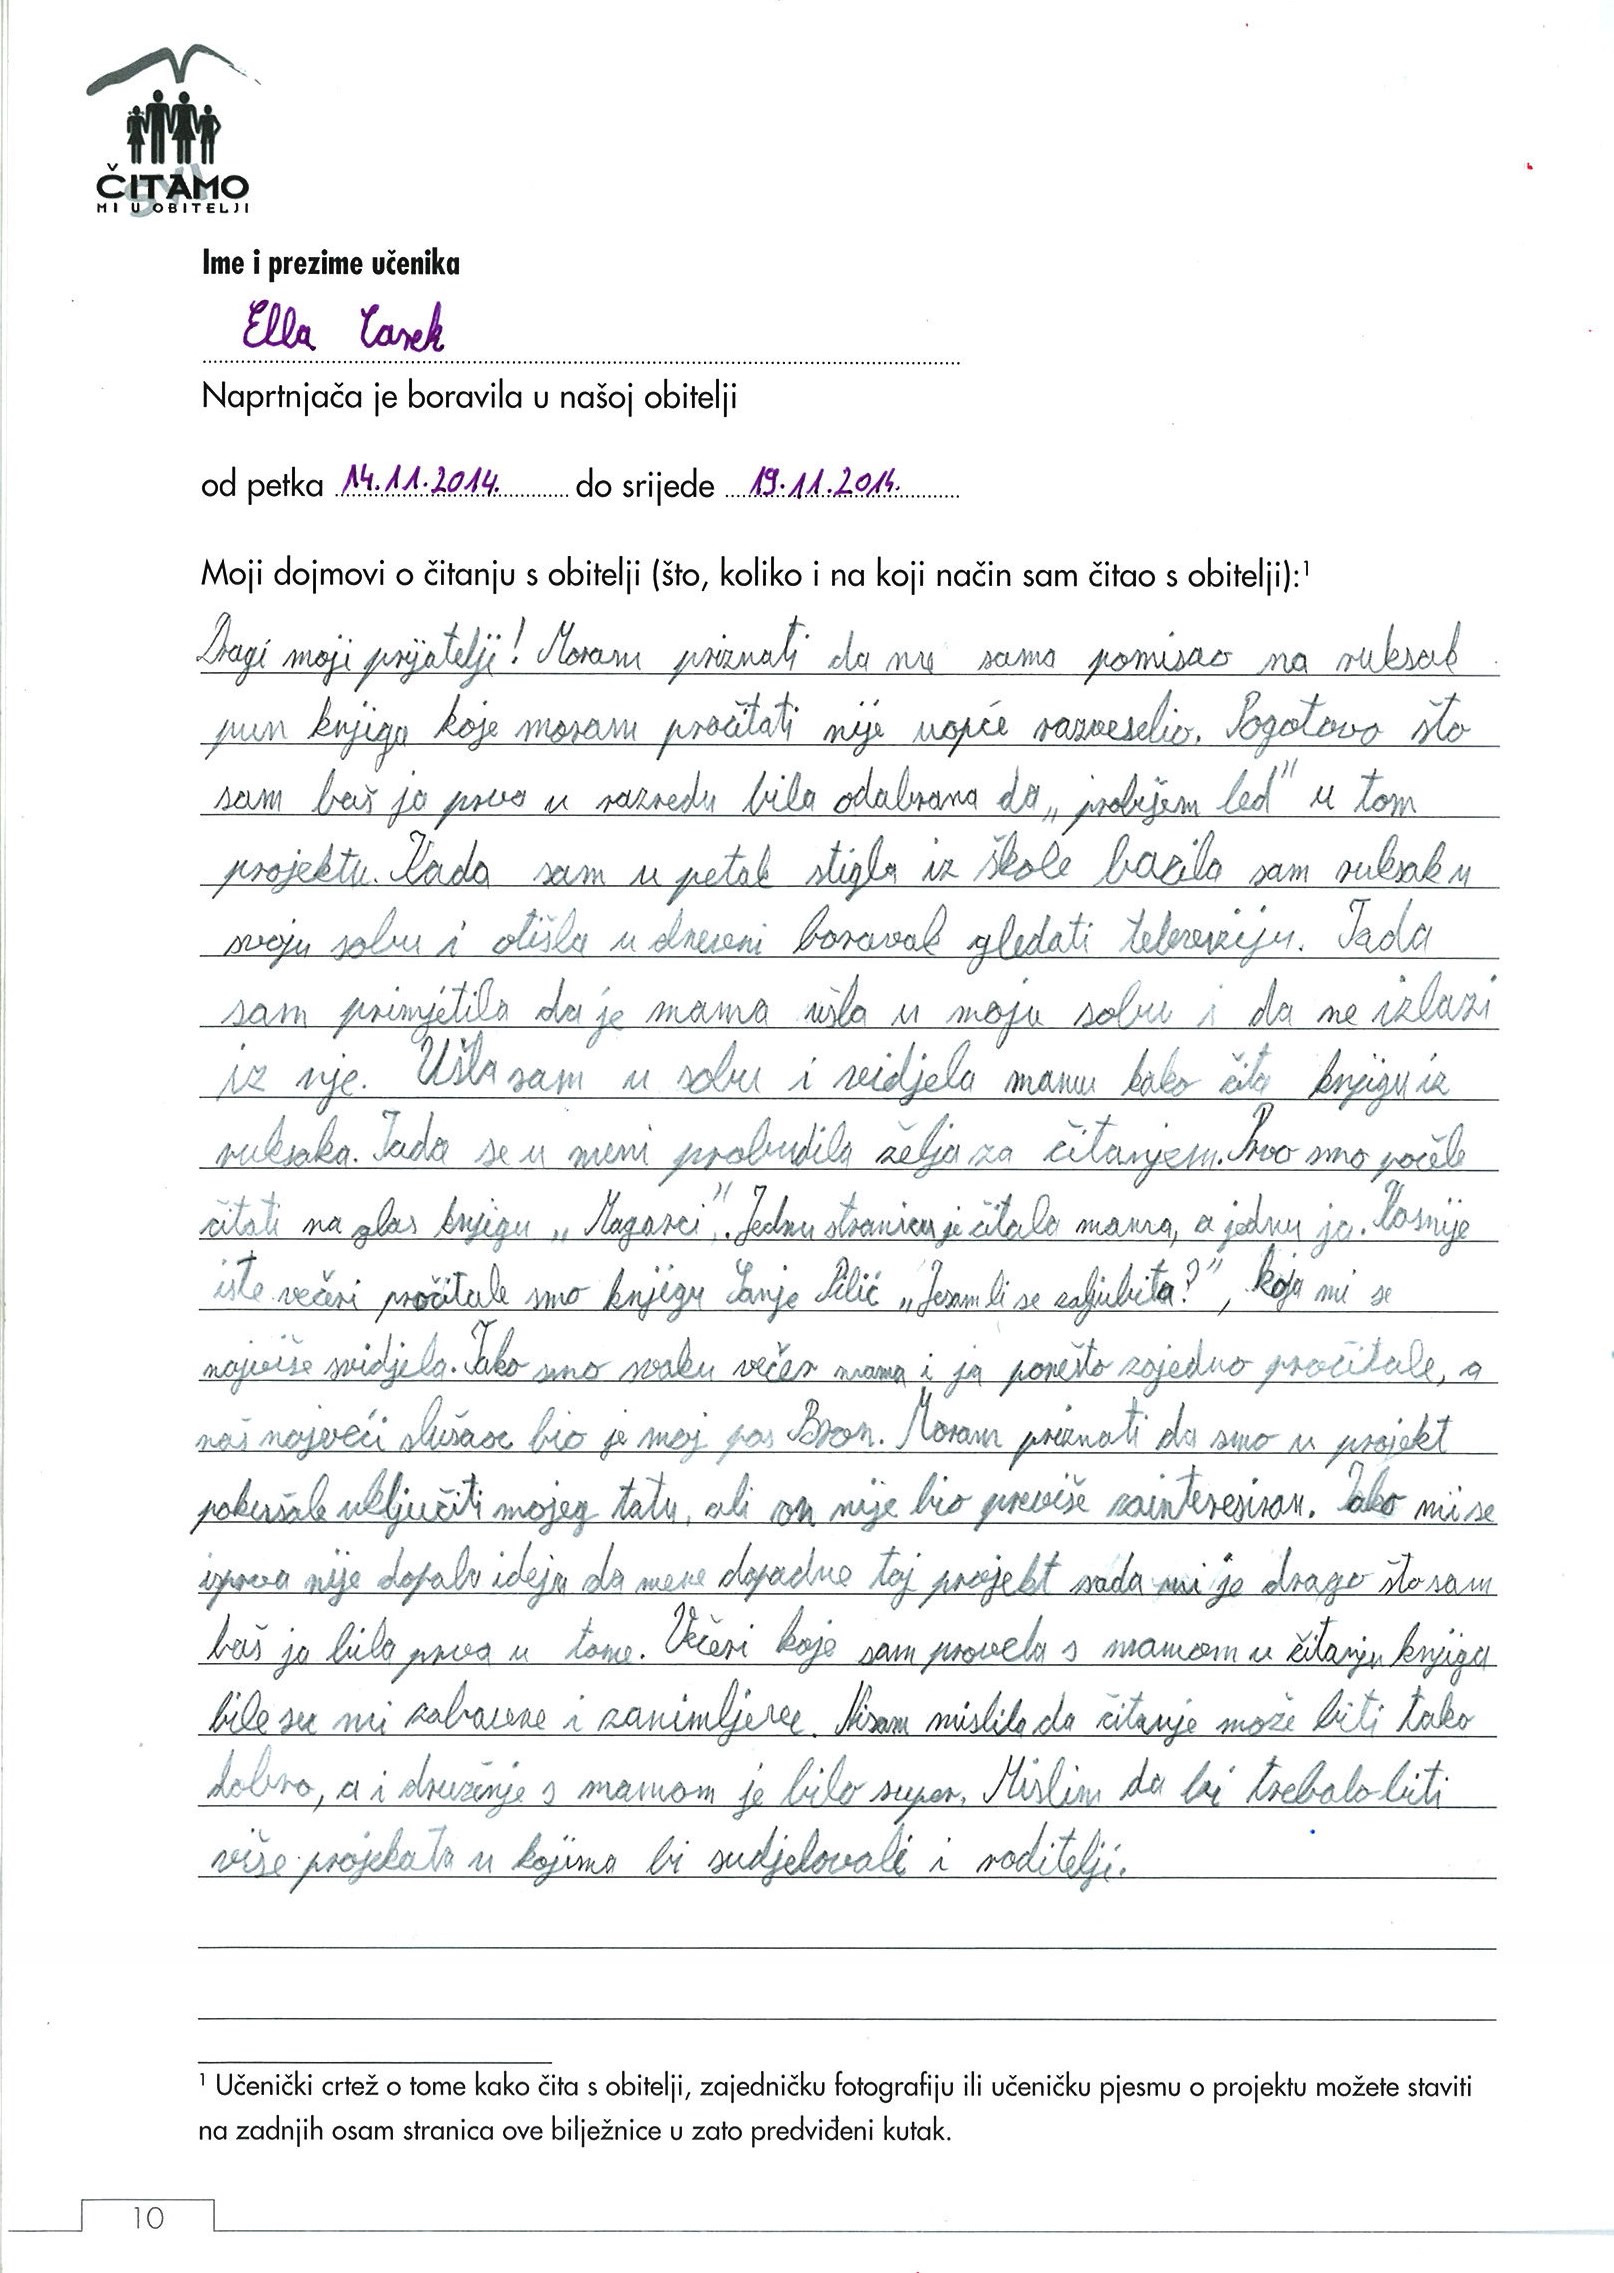 ČITAMO
SVI
MI U OBITELJI
Ime i prezime učenika
Ella Carek
Naprtnjača je boravila u našoj obitelji
od petka 14.11.2014. do srijede 19.11.2014.
Moji dojmovi o čitanju s obitelji (što, koliko i na koji način sam čitao s obitelji):¹
Dragi moji prijatelji! Moram priznati da me sama pomisao na ruksak
pun knjiga koje moram pročitati nije uopće razveselio. Pogotovo što
sam baš ja prva u razredu bila odabrana da „probijem led" u tom
projektu. Kada sam u petak stigla iz škole bacila sam ruksak u
svoju sobu i otišla u dnevni boravak gledati televiziju. Tada
sam primjetila da je mama ušla u moju sobu i da ne izlazi
iz nje. Ušla sam u sobu i vidjela mamu kako čita knjigu iz
ruksaka. Tada se u meni probudila želja za čitanjem. Prvo smo počele
čitati na glas knjigu „Magarci". Jednu stranicu je čitala mama, a jednu ja. Kasnije
iste večeri pročitale smo knjigu Sanje Pilić „Jesam li se zaljubila?", koja mi se
najviše svidjela. Tako smo svaku večer mama i ja ponešto zajedno pročitale, a
naš najveći slušaoc bio je moj pas Bron. Moram priznati da smo u projekt
pokušale uključiti mojeg tatu, ali on nije bio previše zainteresiran. Iako mi se
isprva nije dopala ideja da mene dopadne taj projekt sada mi je drago što sam
baš ja bila prva u tome. Večeri koje sam provela s mamom u čitanju knjiga
bile su mi zabavne i zanimljive. Nisam mislila da čitanje može biti tako
dobro, a i druženje s mamom je bilo super. Mislim da bi trebalo biti
više projekata u kojima bi sudjelovali i roditelji.
¹ Učenički crtež o tome kako čita s obitelji, zajedničku fotografiju ili učeničku pjesmu o projektu možete staviti
na zadnjih osam stranica ove bilježnice u zato predviđeni kutak.
10